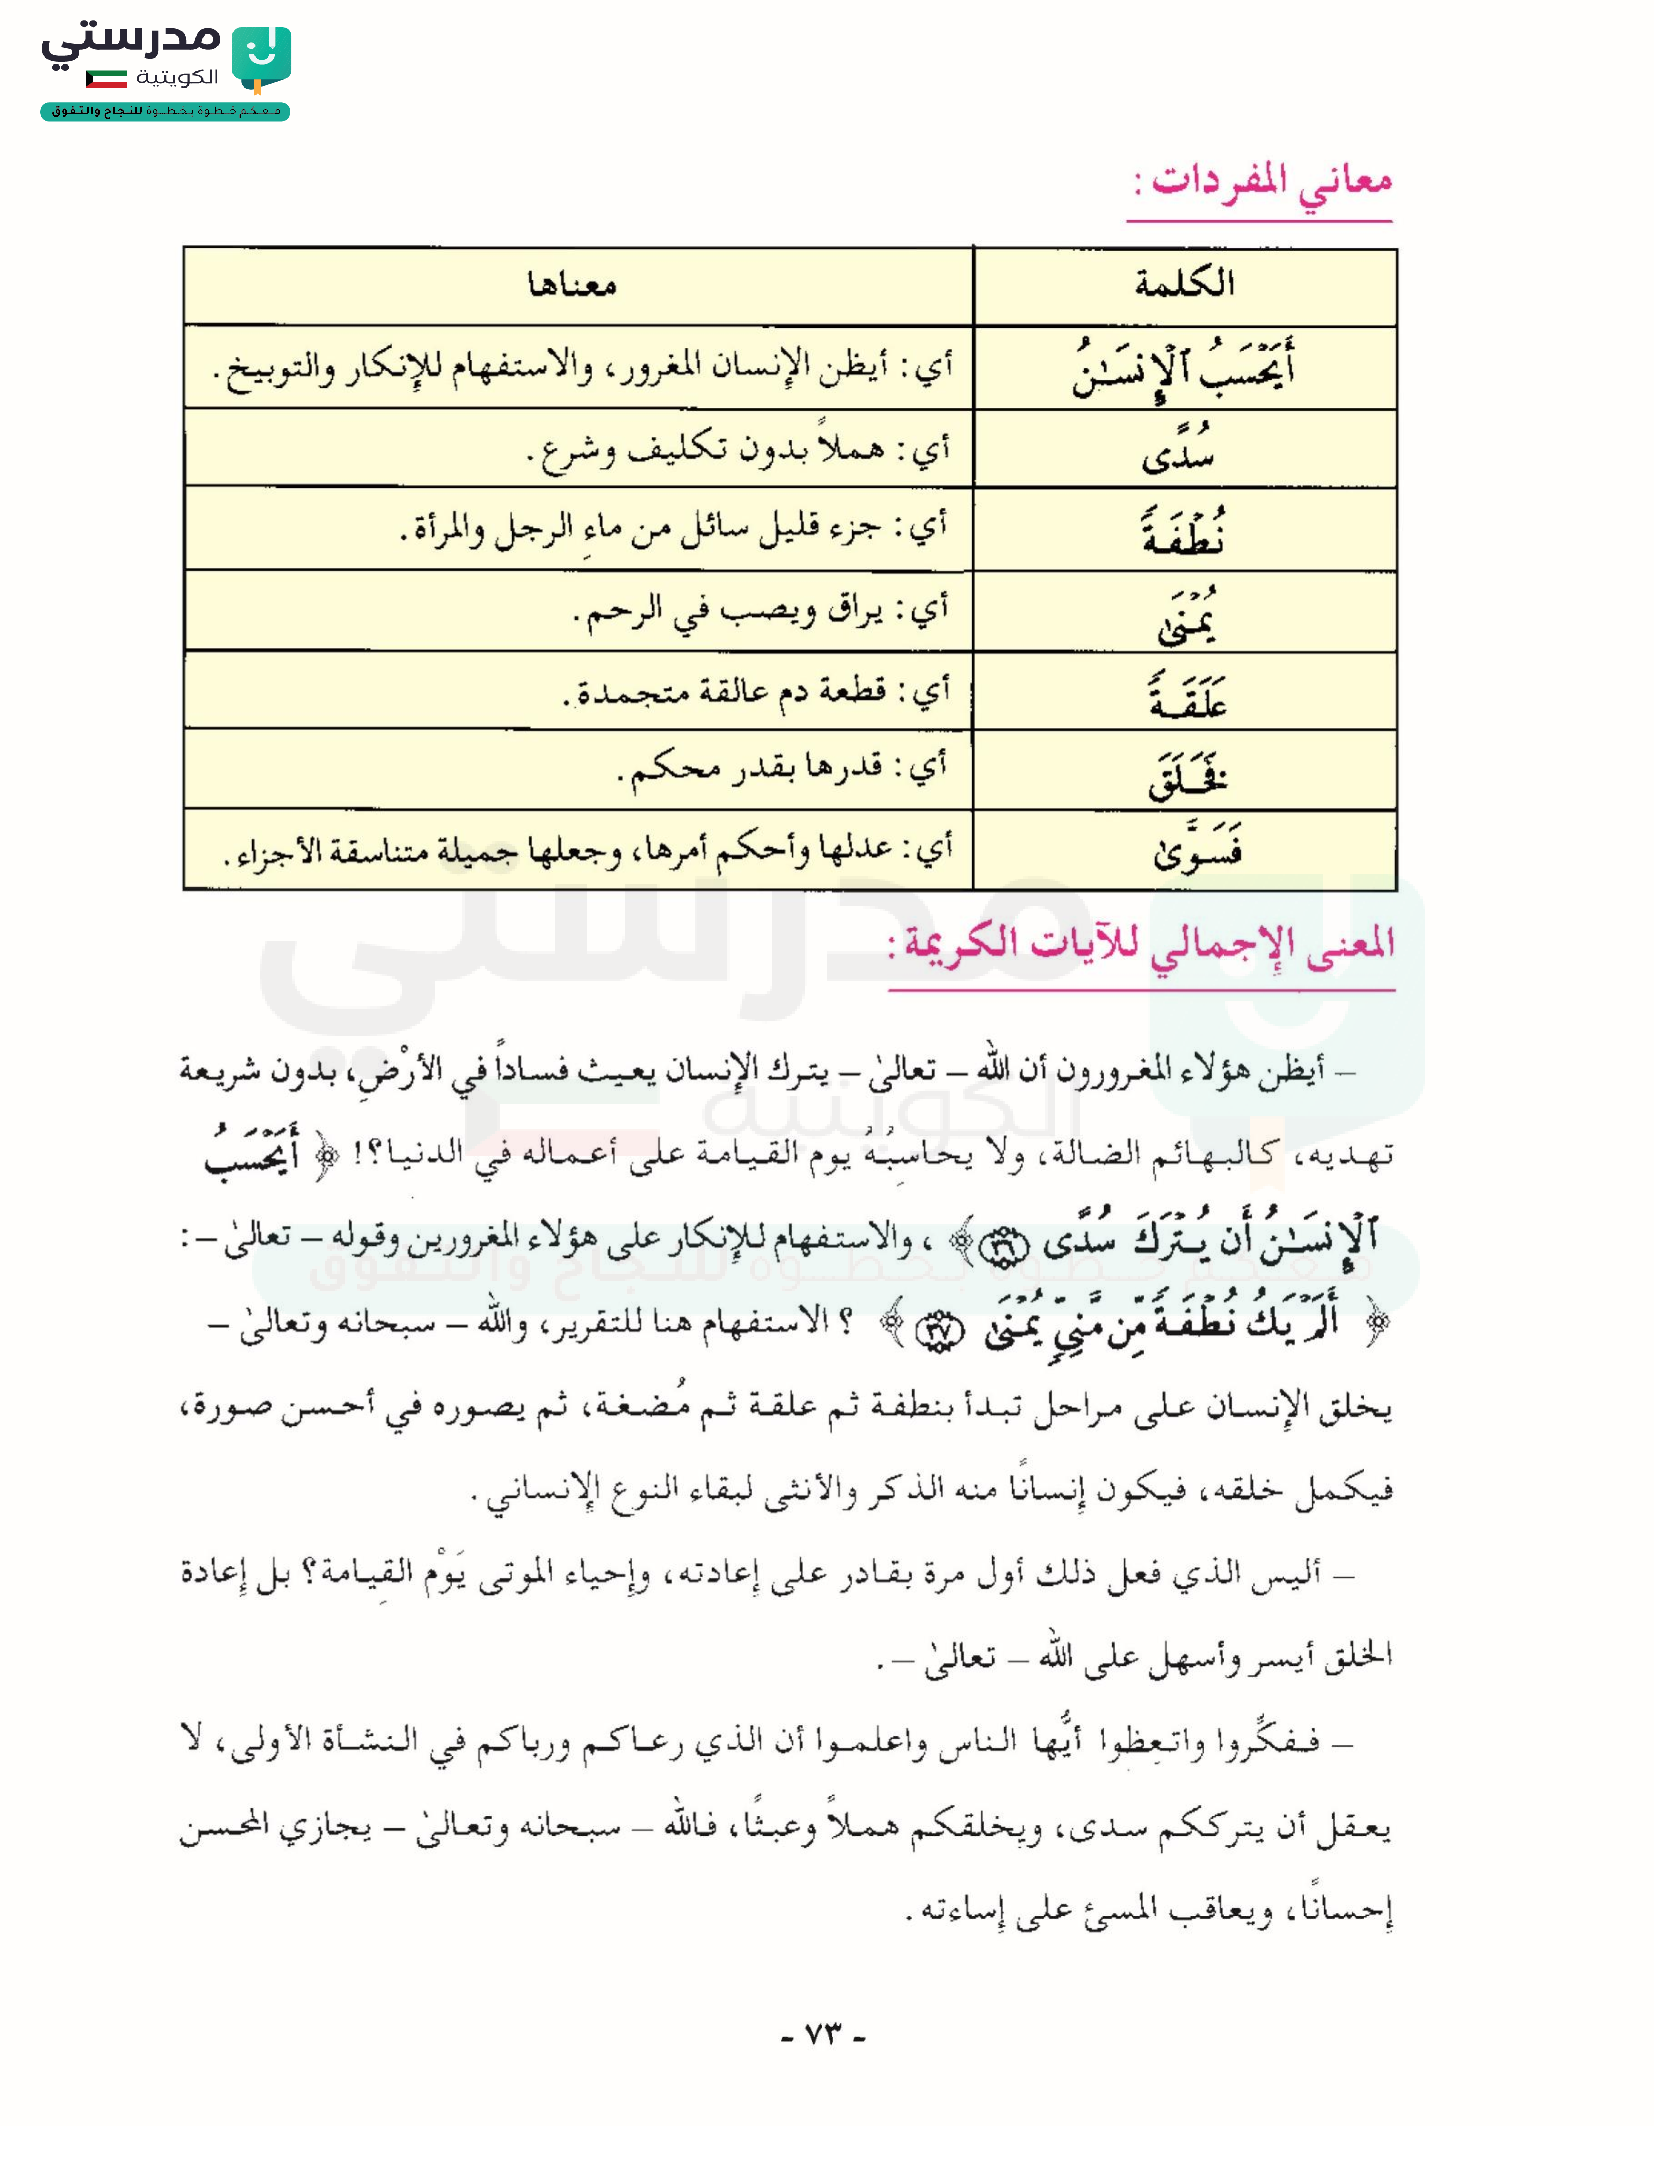 مدرستي
الكويتية
معكم خطوة بخطوة للنجاح والتفوق
معاني المفردات :
الكلمة
معناها
أَيَحْسَبُ ٱلْإِنسَـٰنُ
أي: أيظن الإنسان المغرور، والاستفهام للإنكار والتوبيخ.
سُدًى
أي: هملاً بدون تكليف وشرع.
نُطْفَةً
أي: جزء قليل سائل من ماءِ الرجل والمرأة.
يُمْنَىٰ
أي: يراق ويصب في الرحم.
عَلَقَةً
أي: قطعة دم عالقة متجمدة.
فَخَلَقَ
أي: قدرها بقدر محكم.
فَسَوَّىٰ
أي: عدلها وأحكم أمرها، وجعلها جميلة متناسقة الأجزاء.
المعنى الإجمالي للآيات الكريمة :
– أيظن هؤلاء المغرورون أن الله – تعالىٰ – يترك الإنسان يعيث فساداً في الأرْضِ، بدون شريعة
تهديه، كالبهائم الضالة، ولا يحاسِبُهُ يوم القيامة على أعماله في الدنيا؟! ﴿ أَيَحْسَبُ
ٱلْإِنسَـٰنُ أَن يُتْرَكَ سُدًى ٣٦ ﴾ ، والاستفهام للإنكار على هؤلاء المغرورين وقوله – تعالىٰ – :
﴿ أَلَمْ يَكُ نُطْفَةً مِّن مَّنِىٍّ يُمْنَىٰ ٣٧ ﴾ ؟ الاستفهام هنا للتقرير، والله – سبحانه وتعالىٰ –
يخلق الإنسان على مراحل تبدأ بنطفة ثم علقة ثم مُضغة، ثم يصوره في أحسن صورة،
فيكمل خلقه، فيكون إنسانًا منه الذكر والأنثى لبقاء النوع الإنساني .
– أليس الذي فعل ذلك أول مرة بقادر على إعادته، وإحياء الموتى يَوْم القِيامة؟ بل إعادة
الخلق أيسر وأسهل على الله – تعالىٰ – .
– ففكِّروا واتعِظوا أيُّها الناس واعلموا أن الذي رعاكم ورباكم في النشأة الأولى، لا
يعقل أن يترككم سدى، ويخلقكم هملاً وعبثًا، فالله – سبحانه وتعالىٰ – يجازي المحسن
إحسانًا، ويعاقب المسئ على إساءته .
- ٧٣ -